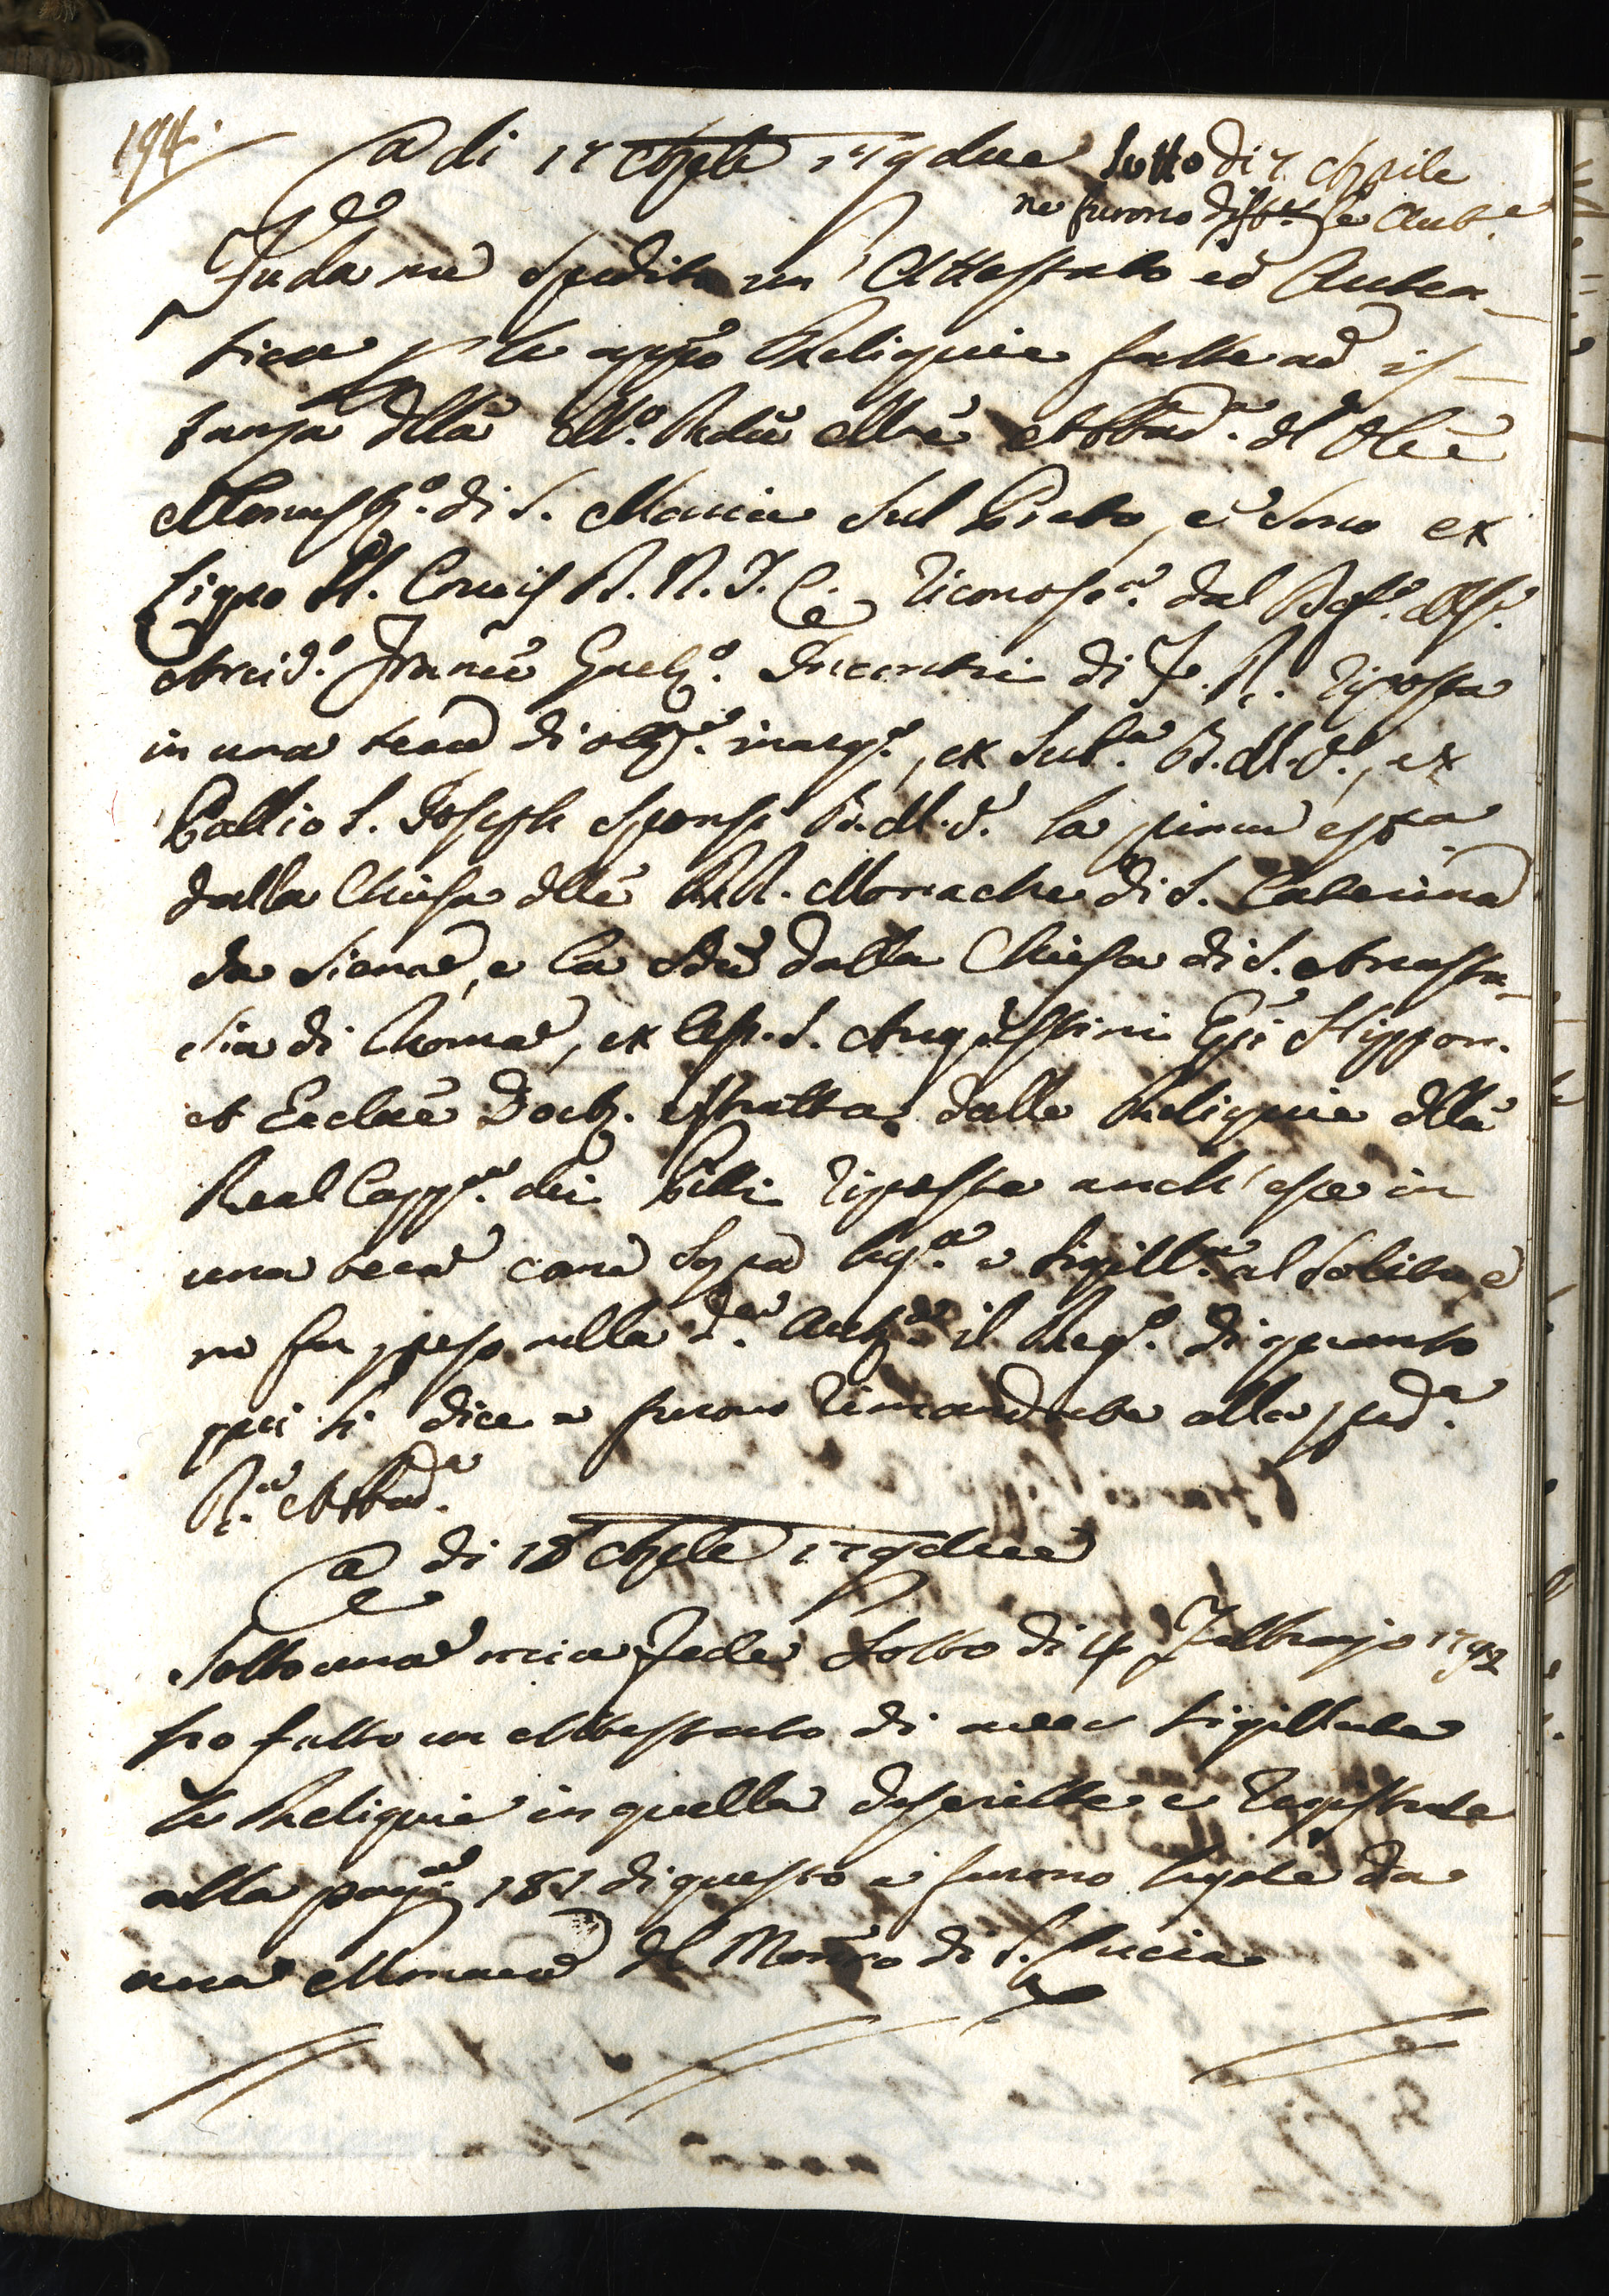 194.
a di 17 Aprle 179due Sotto di 7. Aprile
ne furono le Aut.e
Fu da me spedito un' Attestato ed Auten-
tica p le appo Reliquie fatte ad is-
tanza dlla Mo. Rda Mre Abbad.a dl Ve
Monast.o di S. Maria Sul Prato, e sono ex
Ligno SS. Crucis D. N. J. C. riconosc.a dal
Arcid.o Franc Incontri di F. R. riposta
in una teca di , ex Sul.a B. M. V., ex
Pallio S. Joseph Sponsi B. M. V. la prima est.a
dalla Chiesa dlle RR. Monache di S. Caterina
da Siena, e la Sda dalla Chiesa di S. Anasta-
sia di Roma, ex S. Augustini Epi Hippon.
et Ecclae Doct. estratta dalle Reliquie dlla
Real Capp.a dei Pitti riposta anch' essa in
una teca come Sopra leg.a e sigill.a al solito, e
ne fu preso nella d.a Aut.ca il Reg.o di quanto
qui si dice e furono rimandate alla pred.a
R.a Abbad.a
a di 18 Aprle 179due
Sotto una mia Fede Sotto di 4 Febbrajo 1792
ho fatto un Attestato di aver sigillate
le Reliquie in quella descritte e registrate
alla pag.a 181 di questo e furono legate da
una Monaca dl Monro di S. Lucia